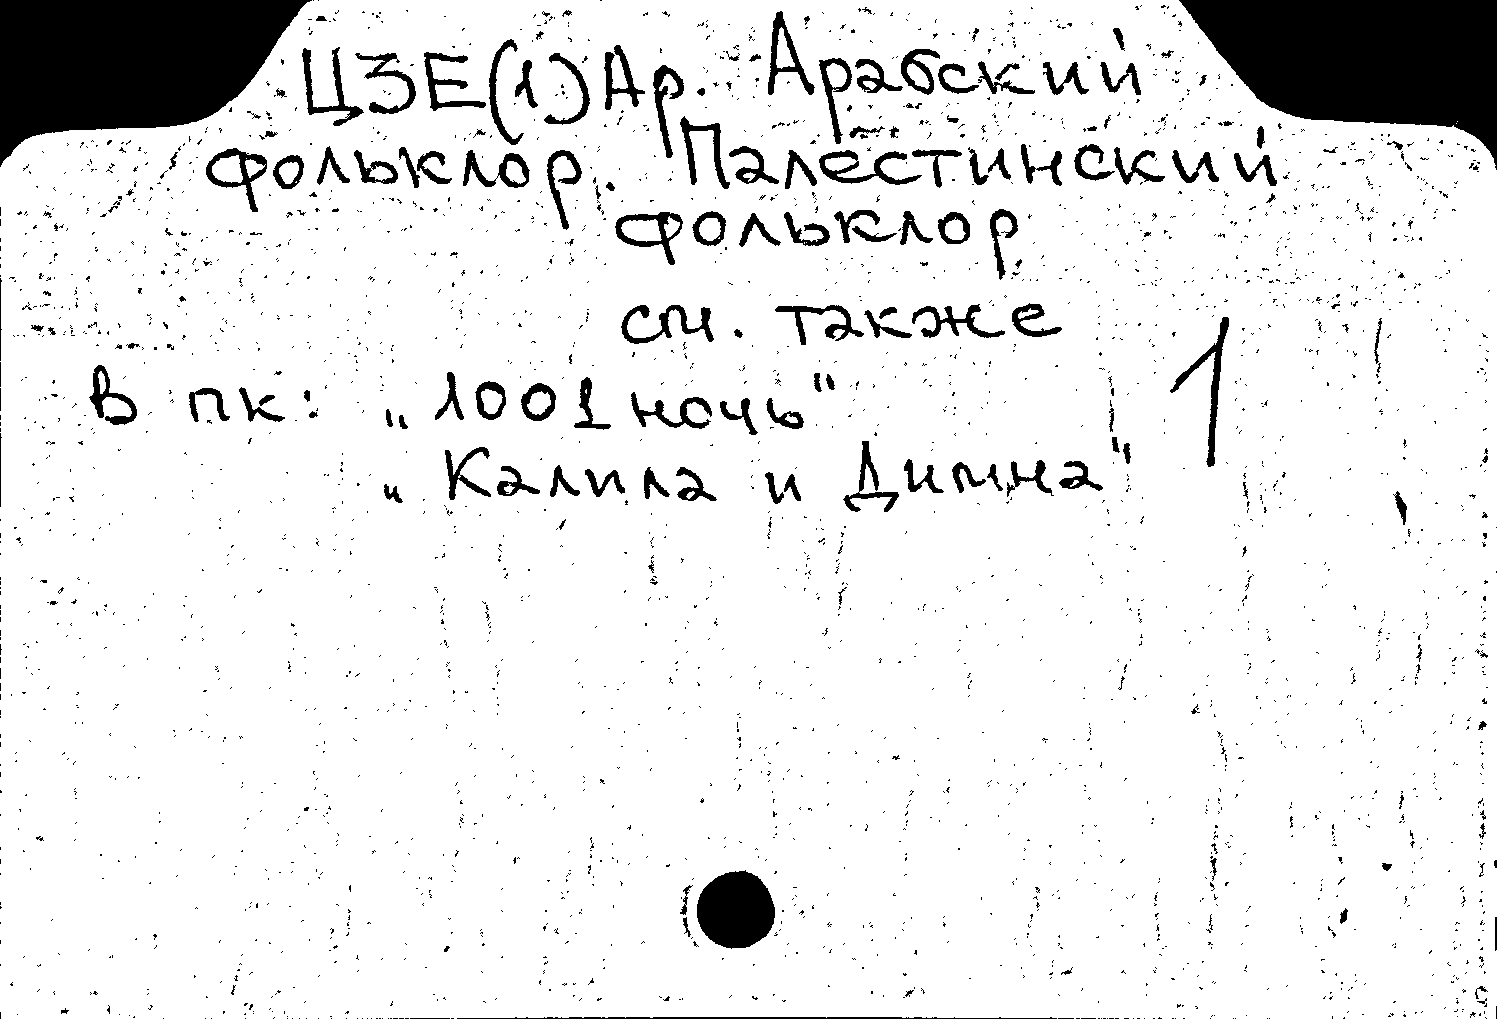 ЦЗЕ(1)Ар. Арабский
фольклор. Палестинский
фольклор
см. также
1
В пк: „1001 ночь"
„Калила и Димна"